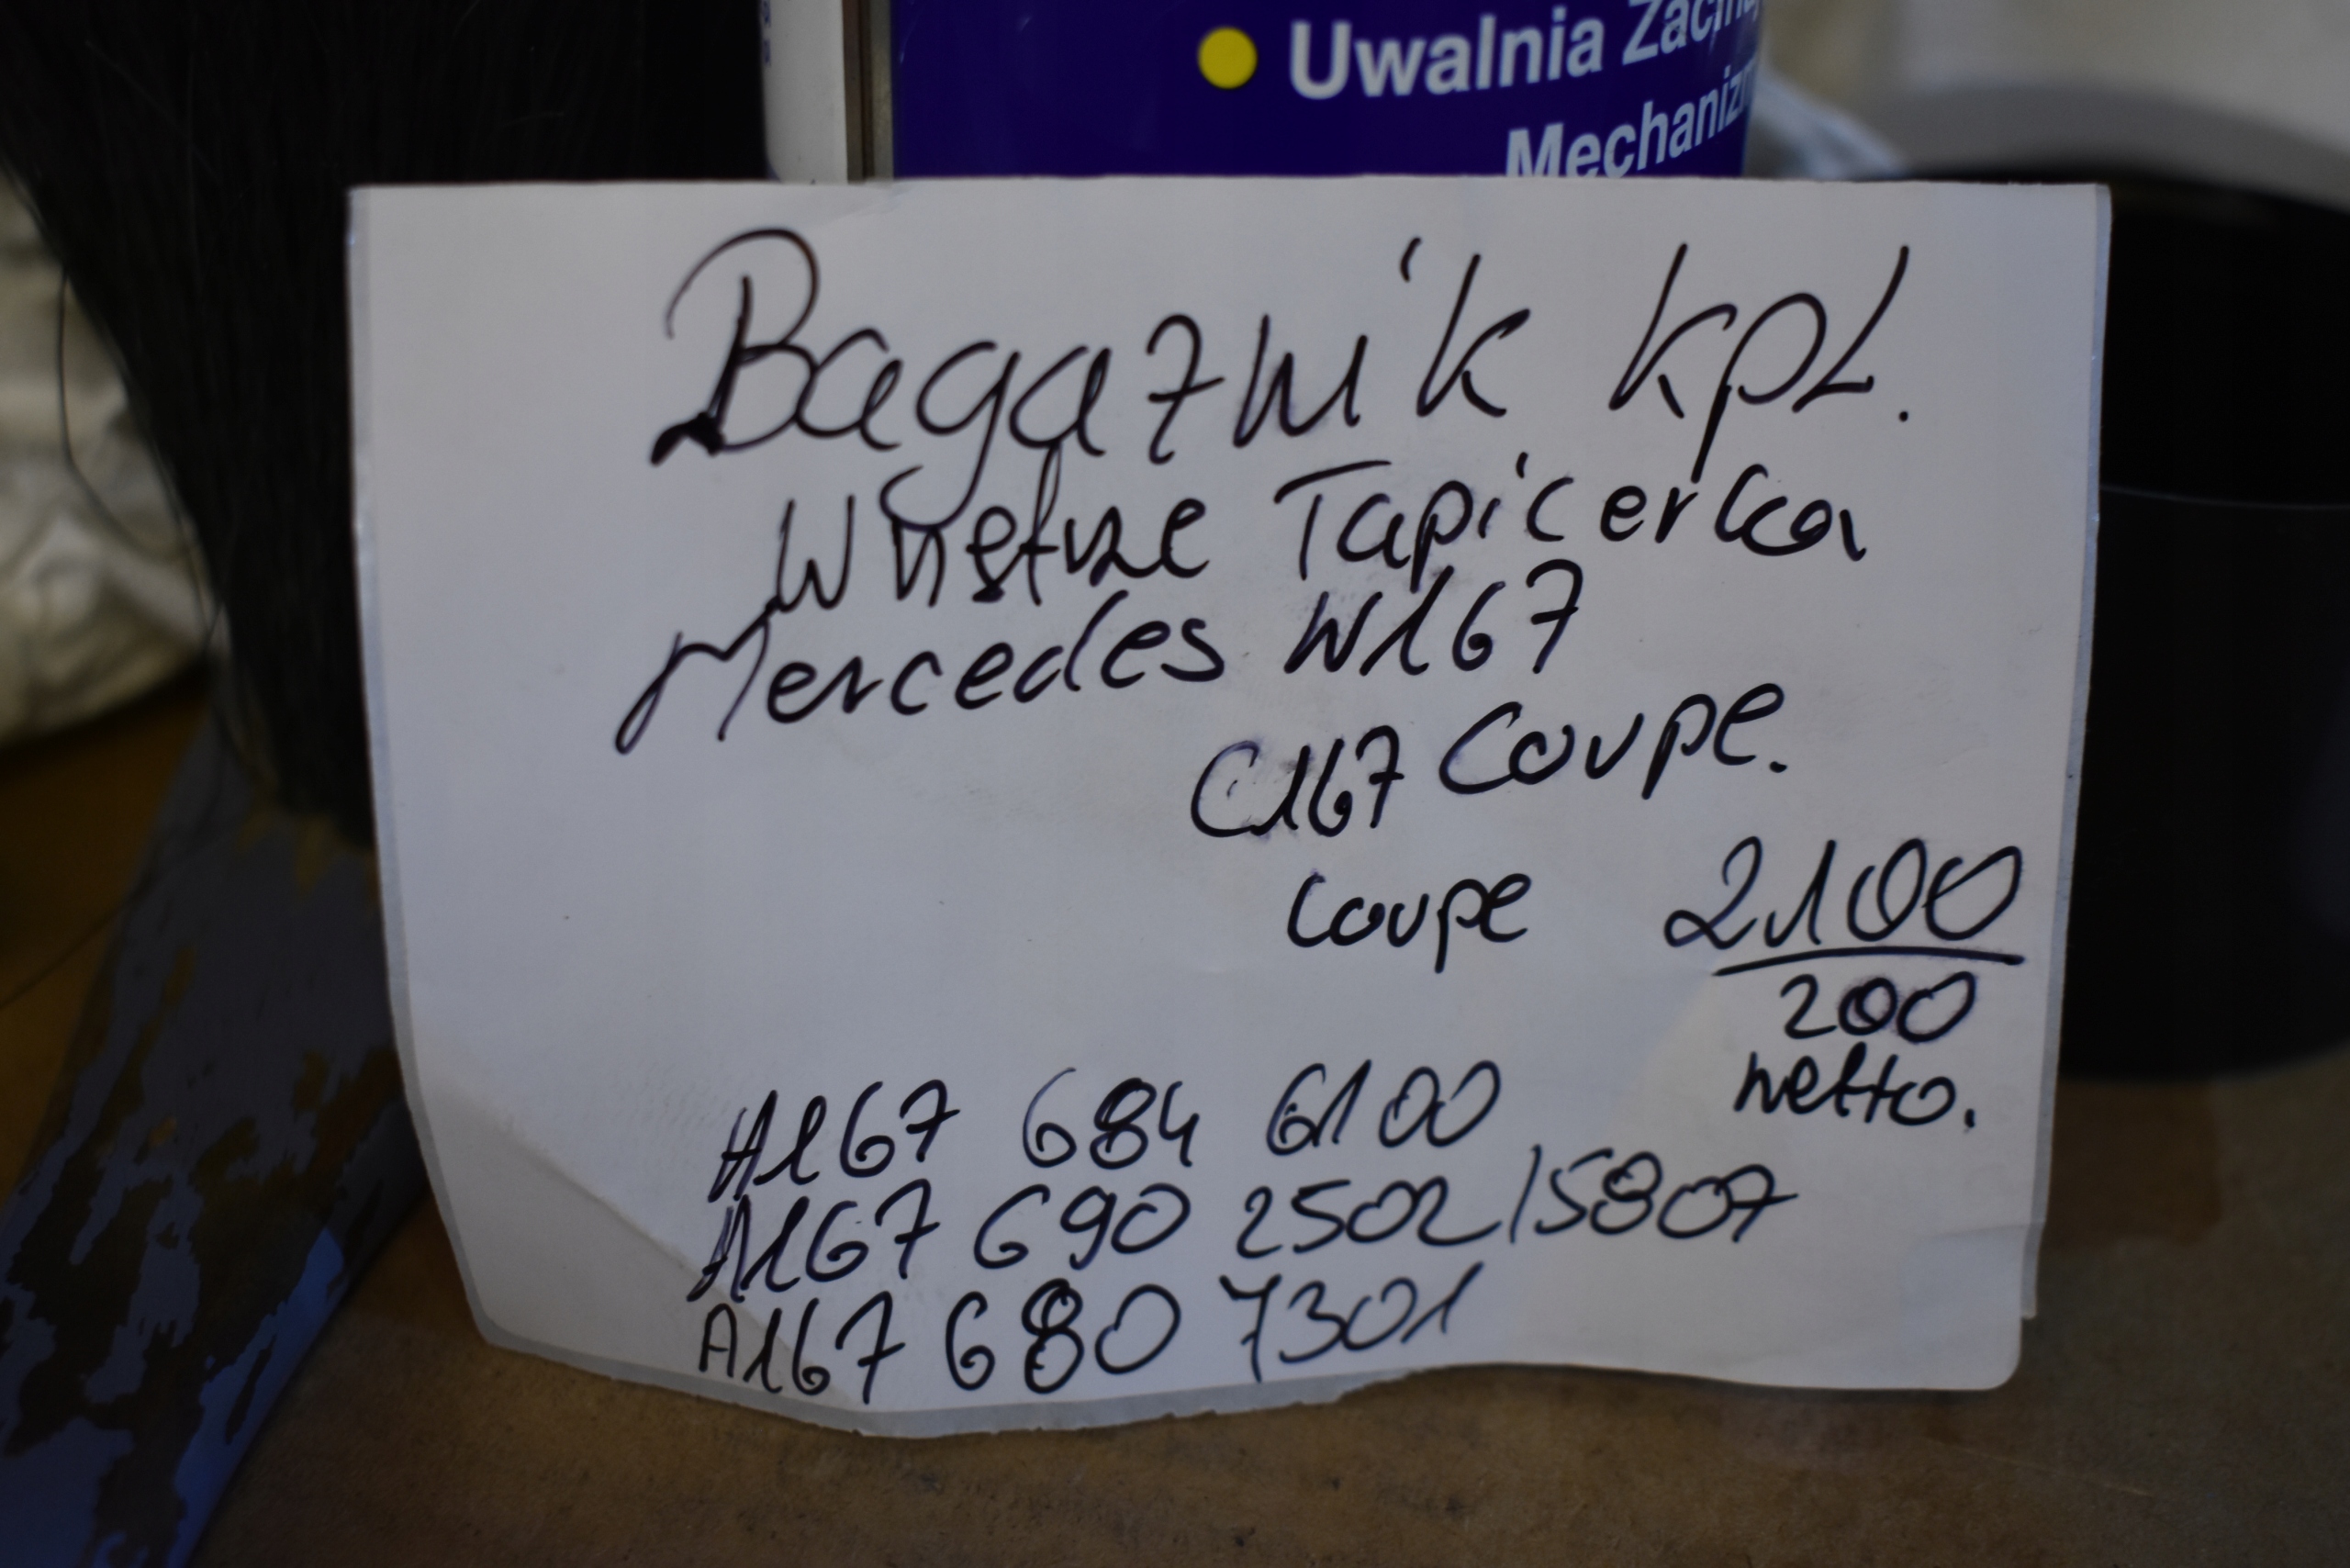 Uwalnia
Bagażnik kpl.
Wnętrze Tapicerka
Mercedes W167
C167 Coupe.
Coupe 2100
200
netto.
A167 684 6100
A167 690 2502/5807
A167 680 7301